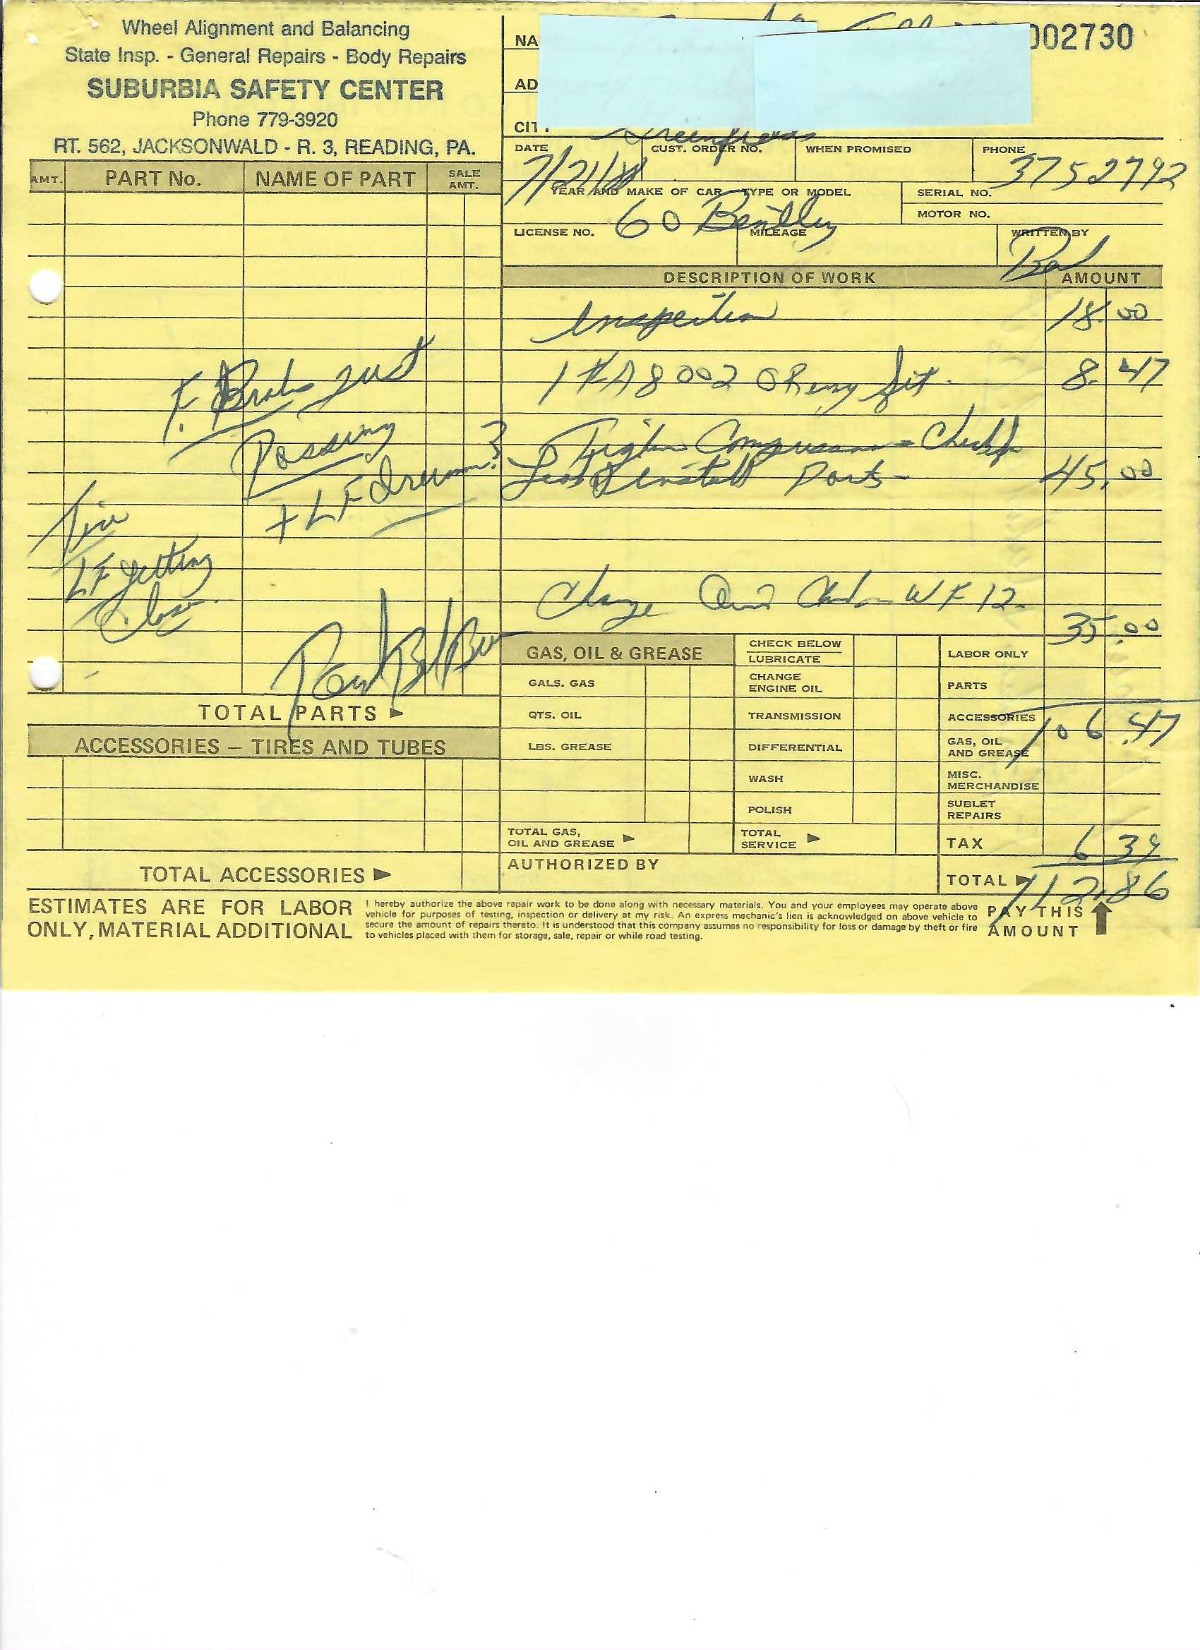 Wheel Alignment and Balancing
State Insp. - General Repairs - Body Repairs
SUBURBIA SAFETY CENTER
Phone 779-3920
RT. 562, JACKSONWALD - R. 3, READING, PA.
NA
002730
AD
CIT
DATE
CUST. ORDER NO.
WHEN PROMISED
PHONE
7/21/
3752792
YEAR AND MAKE OF CAR - TYPE OR MODEL
SERIAL NO.
60 Bentley
MOTOR NO.
LICENSE NO.
MILEAGE
WRITTEN BY
AMT.
PART No.
NAME OF PART
SALE AMT.
F. Brakes just
Passing
+ LF drum?
Tire
LF getting
Close
TOTAL PARTS ►
ACCESSORIES – TIRES AND TUBES
TOTAL ACCESSORIES ►
DESCRIPTION OF WORK
AMOUNT
Inspection 18.00
1 KA8002 fit. 8.47
Tighten
Install Parts 45.00
Change WF 12
35.00
GAS, OIL & GREASE
GALS. GAS
QTS. OIL
LBS. GREASE
TOTAL GAS,
OIL AND GREASE ►
CHECK BELOW
LUBRICATE
CHANGE
ENGINE OIL
TRANSMISSION
DIFFERENTIAL
WASH
POLISH
TOTAL
SERVICE ►
LABOR ONLY
PARTS
ACCESSORIES
GAS, OIL
AND GREASE 106.47
MISC.
MERCHANDISE
SUBLET
REPAIRS
TAX 6 39
TOTAL ► 112.86
AUTHORIZED BY
ESTIMATES ARE FOR LABOR
ONLY, MATERIAL ADDITIONAL
I hereby authorize the above repair work to be done along with necessary materials. You and your employees may operate above
vehicle for purposes of testing, inspection or delivery at my risk. An express mechanic's lien is acknowledged on above vehicle to
secure the amount of repairs thereto. It is understood that this company assumes no responsibility for loss or damage by theft or fire
to vehicles placed with them for storage, sale, repair or while road testing.
PAY THIS
AMOUNT